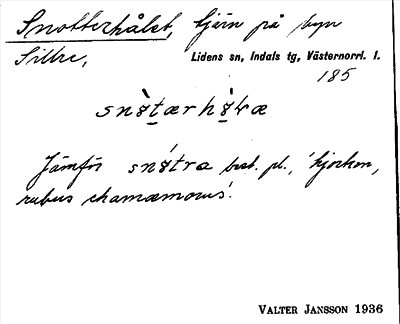 Snotterhålet, tjärn på byn
Sillre, Lidens sn, Indals tg, Västernorrl. l.
185
Jämför best. pl., 'hjortron,
rubus chamæmorus'.
VALTER JANSSON 1936